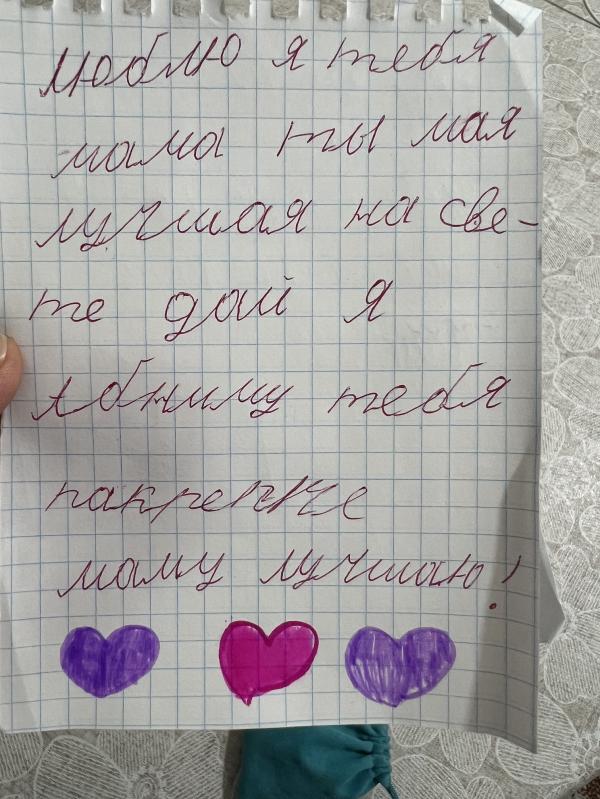 Люблю я тебя
мама ты мая
лучшая на све-
те дай я
абниму тебя
пакрепче
маму лучшаю!